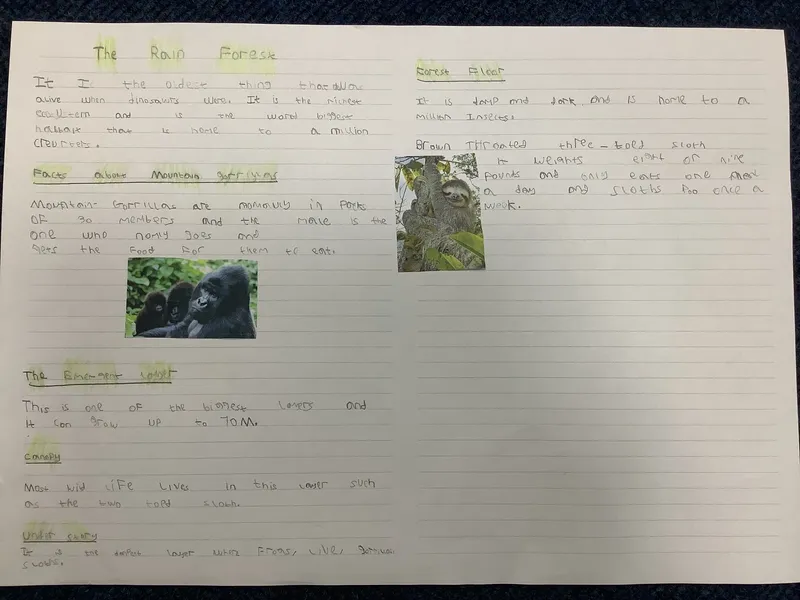 The Rain Forest
It Is the oldest thing that
alive when dinosaurs were. It is the richest
and is the word biggest
habitat that is home to a million
Facts about Mountain gorrilas
Mountain Gorrillas are in Packs
OF 30 members and the male is the
one who nomly goes and
gets the Food For them to eat.
The Emergent Layer
This is one of the biggest layers and
it can grow up to 70M.
canopy
Most wild LiFe Lives in this Layer such
as the two toed sloth.
Under story
It is the layer Frogs,
Forest Floor
It is damp and dark and is home to a
million Insects.
Brown THroated three-toed sloth
It weights eight or nine
pounds and only eats one
a day and sloths Poo once a
week.